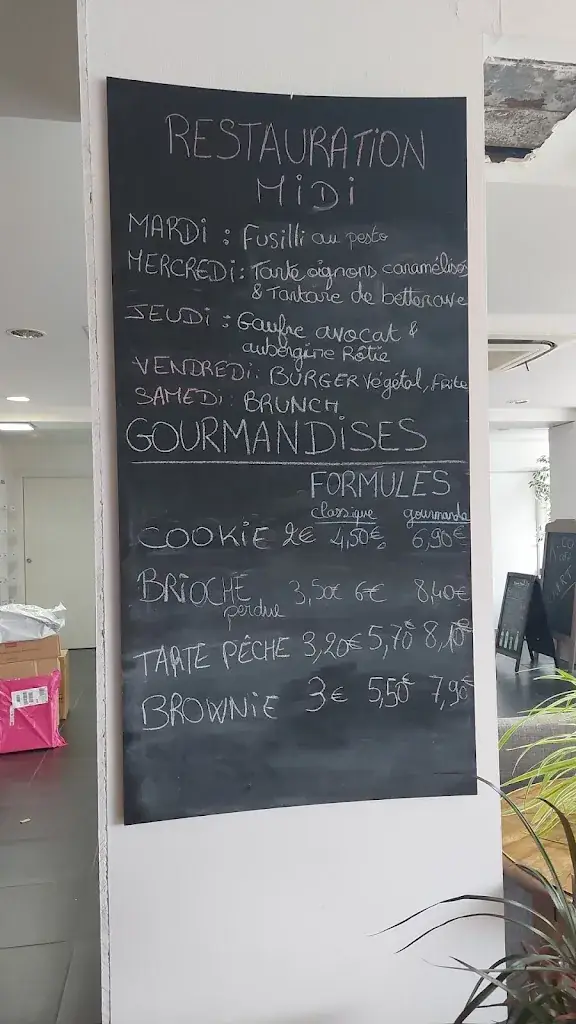 RESTAURATION
MiDi
MARDi : Fusilli au pesto
MERCREDi : Tarte oignons caramélisés
& Tartare de betterave
JEUDi : Gaufre avocat &
aubergine Rôtie
VENDREDi : BURGER Végétal, Frite
SAMEDi : BRUNCH
GOURMANDISES
FORMULES
classique gourmande
COOKiE 2€ 4,50€ 6,90€
BRiOCHE perdue 3,50€ 6€ 8,40€
TARTE PÊCHE 3,20€ 5,70€ 8,10€
BROWNiE 3€ 5,50€ 7,90€